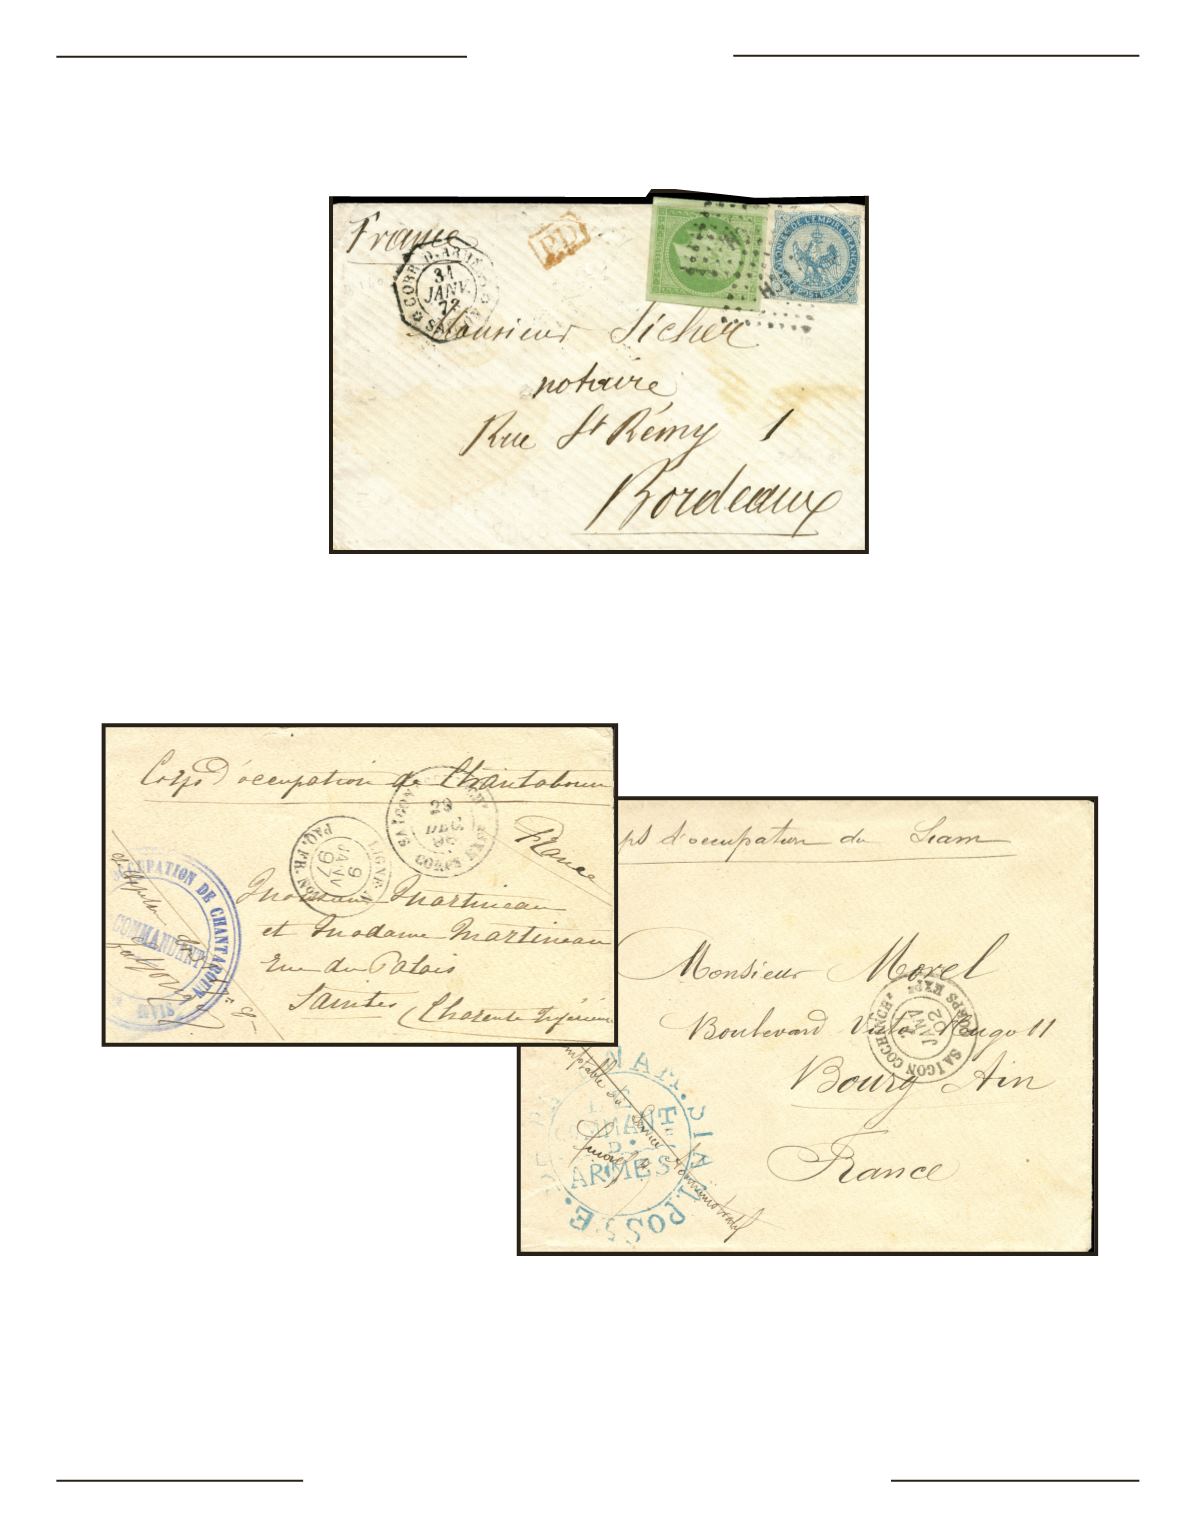 France
PD
CORR. D. ARMÉES
31
JANV.
72
SAIGON
COLONIES·DE·L'EMPIRE·FRANÇAIS
POSTES
Monsieur Sicher
notaire
Rue St Rémy 1
Bordeaux
Corps d'occupation de Chantaboun
France
SAIGON
29
DEC.
96
CORPS EXP.
LIGNE. N
9
JANV
97
PAQ. FR.
OCCUPATION DE CHANTABOUN
COMMANDANT
SIAM
Monsieur Martineau
et Madame Martineau
Rue du Palais
Saintes (Charente Inférieure
ps d'occupation du Siam
Monsieur Morel
Boulevard Victor Hugo 11
Bourg Ain
France
SAIGON COCHINCHE
CORPS EXPE
JANV
02
comptable du Service Administratif
COMMANT
D'
ARMES
SIAM
POSTE